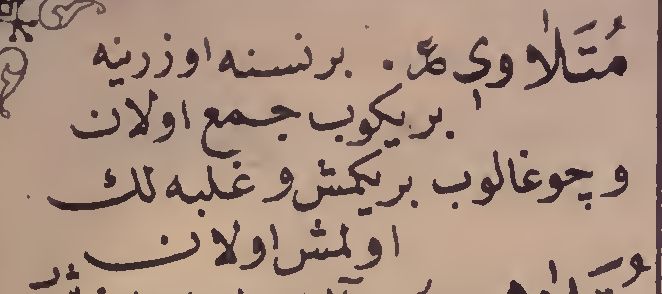 مُتَلَاوِي عر. برنسنه اوزرينه
بريكوب جمع اولان
و چوغالوب بريكمش و غلبه لك
اولمش اولان